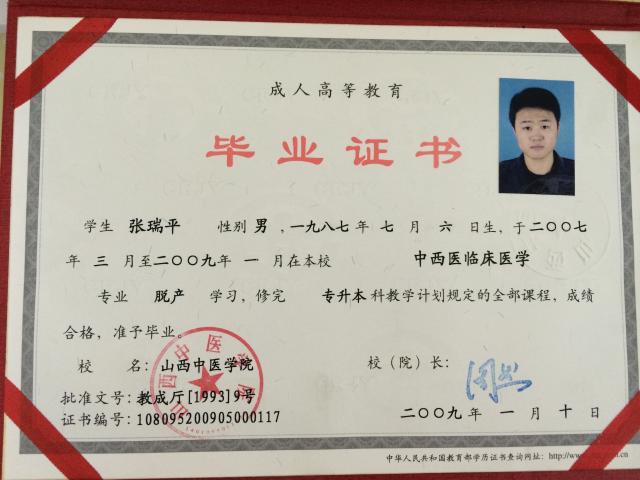 成人高等教育
毕业证书
学生 张瑞平 性别 男 ，一九八七 年 七 月 六 日生，于 二〇〇七
年 三 月至 二〇〇九 年 一 月在本校 中西医临床医学
专业 脱产 学习，修完 专升本 科教学计划规定的全部课程，成绩
合格，准予毕业。
校 名：山西中医学院 校（院）长：
批准文号：教成厅[1993]9号
证书编号：108095200905000117 二〇〇九 年 一 月 十 日
中华人民共和国教育部学历证书查询网址：http://www.